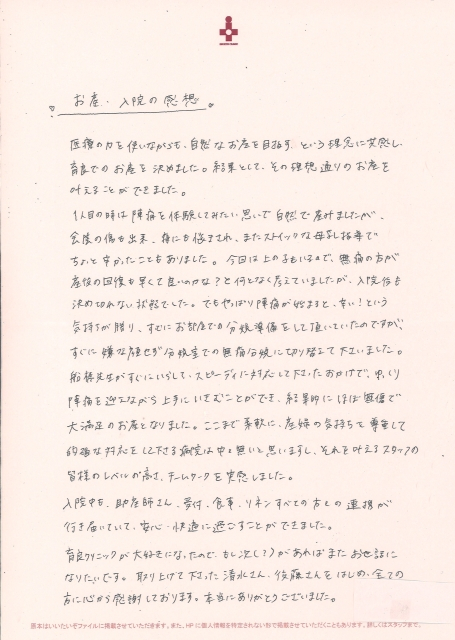 お産・入院の感想
医療の力を使いながらも、自然なお産を目指す、という理念に共感し、
育良でのお産を決めました。結果として、その理想通りのお産を
叶えることができました。
1人目の時は陣痛を体験してみたい思いで自然で産みましたが、
会陰の傷も出来、痛にも悩まされ、またストイックな母乳指導で
ちょっと辛かったこともありました。今回は上の子もいるので、無痛の方が
産後の回復も早くて良いのかな?と何となく考えていましたが、入院後も
決め切れない状態でした。でもやっぱり陣痛が始まると、辛い!という
気持ちが勝り、すでにお部屋での分娩準備をして頂いていたのですが、
すぐに嫌な顔せず分娩室での無痛分娩に切り替えて下さいました。
先生がすぐにいらして、スピーディに対応して下さったおかげで、ゆっくり
陣痛を迎えながら上手にいきむことができ、結果的にほぼ無傷で
大満足のお産となりました。ここまで柔軟に、産婦の気持ちを尊重して
的確な対応をして下さる病院は中々無いと思いますし、それを叶えるスタッフの
皆様のレベルの高さ、チームワークを実感しました。
入院中も、助産師さん、受付、食事、リネンすべての方との連携が
行き届いていて、安心・快適に過ごすことができました。
育良クリニックが大好きになったので、もし次(?)があればまたお世話に
なりたいです。取り上げて下さった清水さん、後藤さんをはじめ、全ての
方に心から感謝しております。本当にありがとうございました。
原本はいいたいぞファイルに掲載させていただきます。また、HPに個人情報を特定されない形で掲載させていただくこともあります。詳しくはスタッフまで。